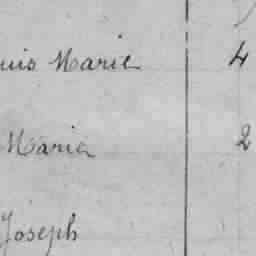 uis Marie 4
Maria 2
Joseph